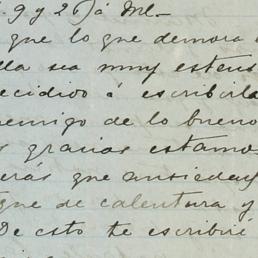 9 y 2) á Ml-
que lo que demora
lla sea muy estens
ecidido á escribirla
enemigo de lo bueno
s gracias estamo
erás que ansiedad
que de calentura y
De esto te escribiré